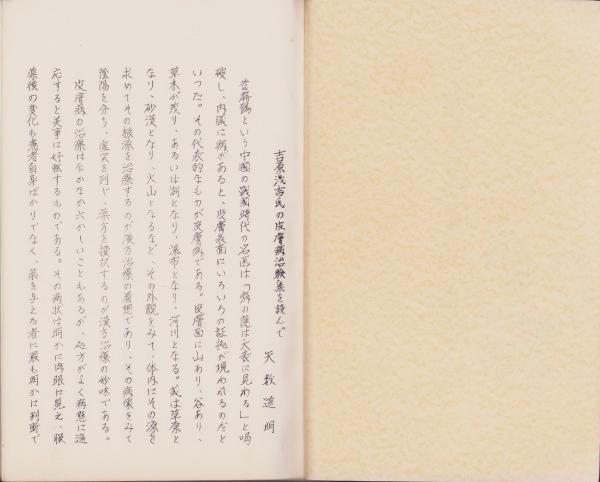 吉原浅吉氏の皮膚病治験集を読んで
矢数道明
昔扁鵲という中国の戦国時代の名医は「病の應は大表に見わる」と喝
破し、内臓に病があると、皮膚表面にいろいろの証拠が現われるのだと
いった。その代表的なものが皮膚病である。皮膚面に山あり、谷あり、
草木が茂り、あるいは湖となり、瀑布となり、河川となる。或は草原と
なり、砂漠となり、火山となるなど、その外観をみて、体内にその源を
求めてその根源を治療するのが漢方治療の着想であり、その病像をみて
陰陽を分ち、虚実を判じ、薬方を撰択するのが漢方治療の妙味である。
皮膚病の治療はなかなか六かしいこともあるが、処方がよく病態に適
応すると美事に好転するものである。その病状は明かに肉眼に見え、服
薬後の変化も患者自身ばかりでなく、薬を与えた者に最も明かに判断で